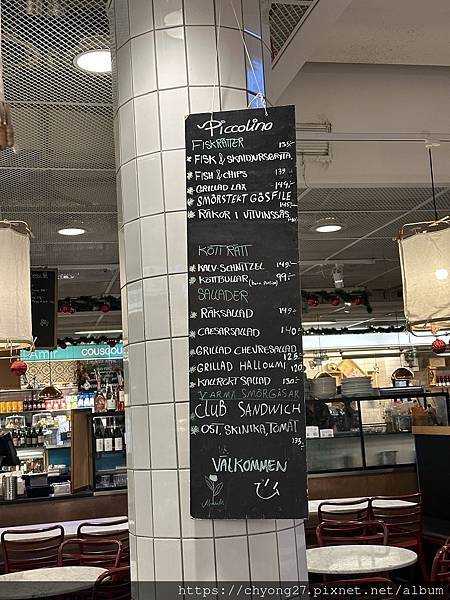 Piccolino
FISKRÄTTER 135:-
* FISK & SKALDJURSGRYTA
* FISH & CHIPS 139
* GRILLAD LAX 149:-
* SMÖRSTEKT GÖSFILE 145:-
* RÄKOR I VITVINSSÅS
KÖTT RÄTT
* KALV-SCHNITZEL 149:-
* KÖTTBULLAR 99:-
SALLADER
* RÄKSALLAD 149:-
* CAESARSALLAD 140:-
* GRILLAD CHEVRESALLAD 125:-
* GRILLAD HALLOUMI 120
* KALLRÖKT SALLAD 130:-
VARMA SMÖRGÅSAR
* CLUB SANDWICH
* OST, SKINKA, TOMAT 135:-
VÄLKOMMEN
COUSCOU
https://chyong27.pixnet.net/album